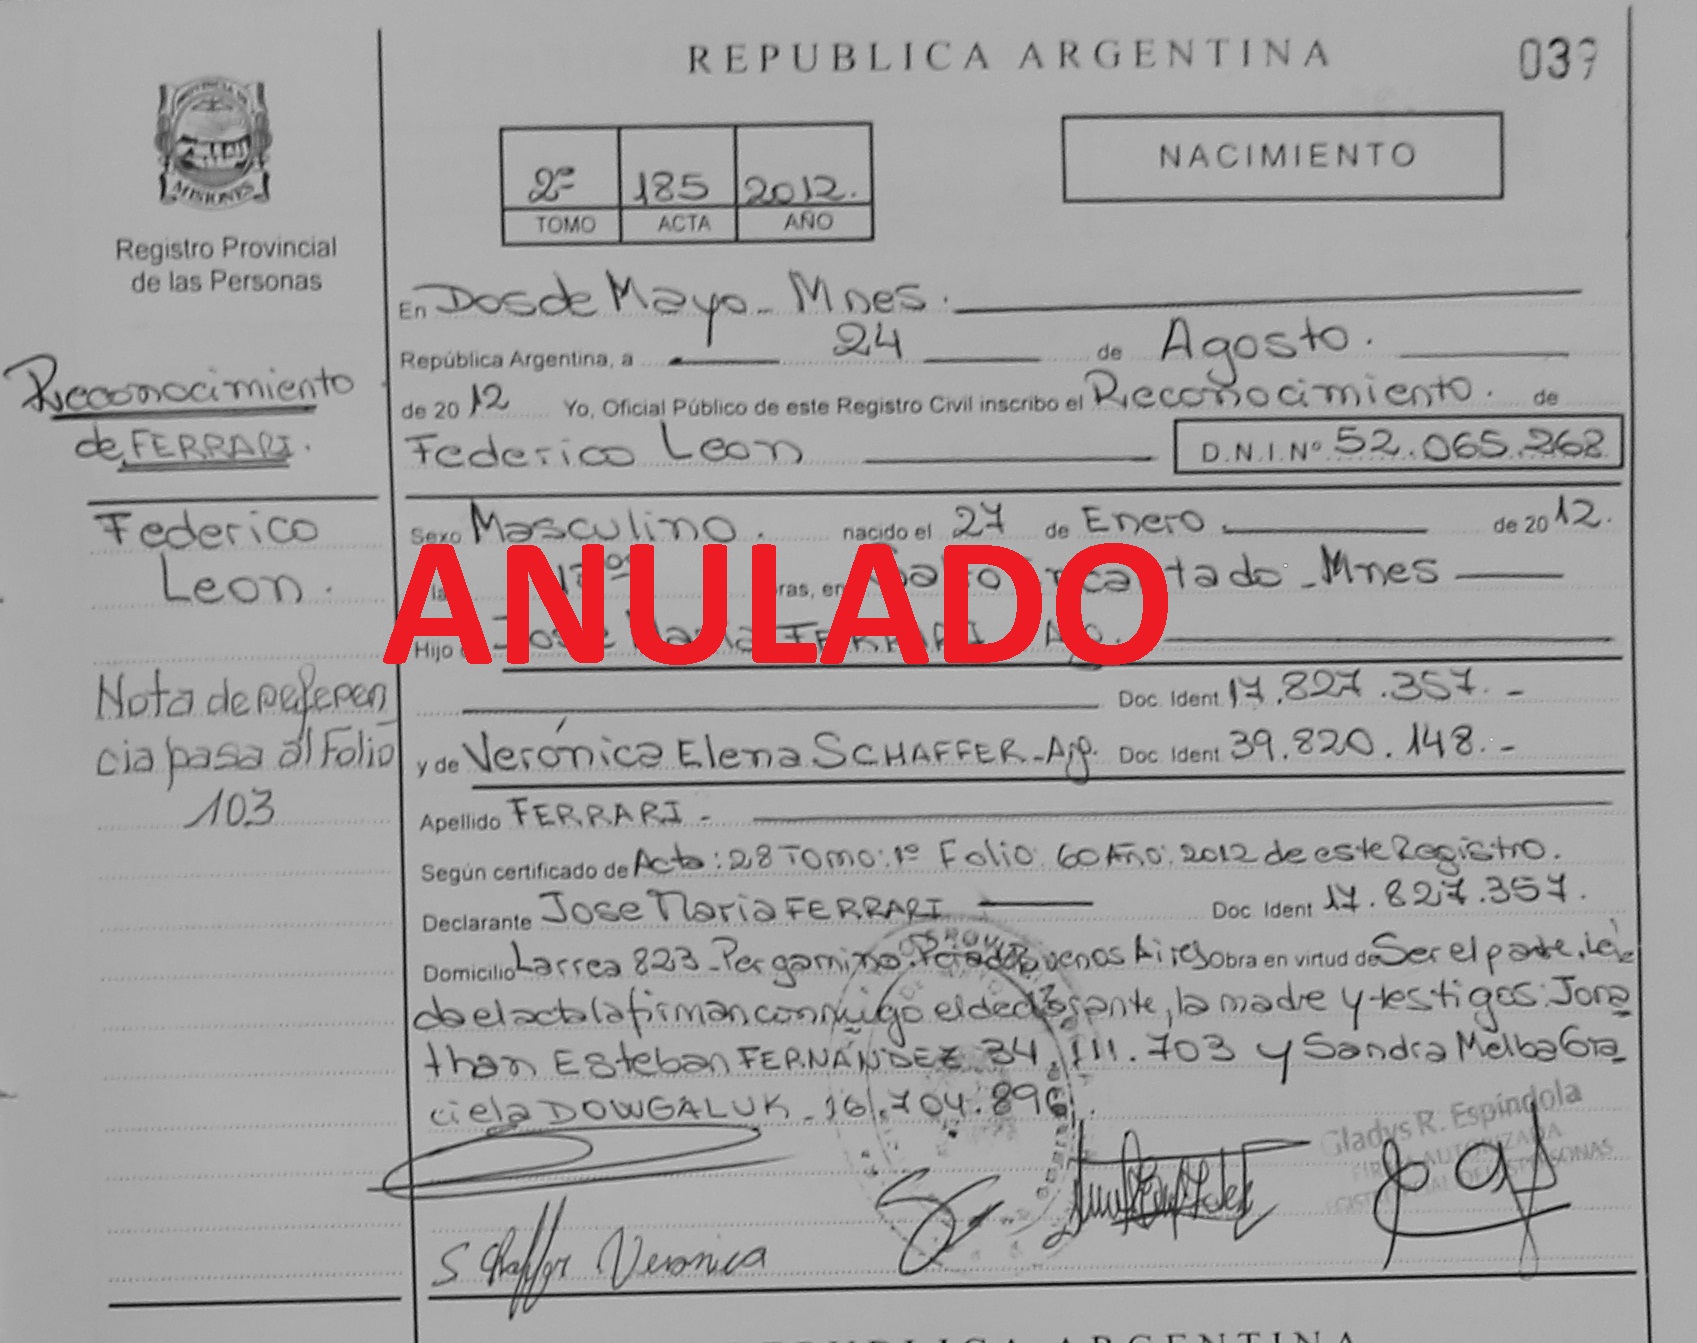 REPUBLICA ARGENTINA
039
PROVINCIA DE
MISIONES
Registro Provincial
de las Personas
2º 185 2012.
TOMO ACTA AÑO
NACIMIENTO
En Dos de Mayo - Mnes.
República Argentina, a 24 de Agosto.
de 2012 Yo, Oficial Público de este Registro Civil inscribo el Reconocimiento. de
Federico Leon D.N.I.Nº 52.065.268
Reconocimiento
de FERRARI.
Federico
Leon.
Nota de referen
cia pasa al Folio
103
Sexo Masculino. nacido el 27 de Enero de 2012.
ras, en Salto Encantado - Mnes
ANULADO
Hijo Jose Maria FERRARI Ag.
Doc. Ident 17.827.357.-
y de Verónica Elena SCHAFFER - Ag. Doc. Ident 39.820.148.-
Apellido FERRARI -
Según certificado de Acta: 28 Tomo: 1º Folio: 60 Año: 2012 de este Registro.
Declarante Jose Maria FERRARI Doc. Ident 17.827.357.
Domicilio Larrea 823 - Pergamino. Pcia de Buenos Aires Obra en virtud de Ser el padre. Leí
da el acta la firman conmigo el declarante, la madre y testigos: Jona
than Esteban FERNÁNDEZ 34.111.703 y Sandra Melba Gra
ciela DOWGALUK - 16.704.896.
Gladys R. Espíndola
FIRMA AUTORIZADA
Schaffer Veronica
REPUBLICA ARGENTINA